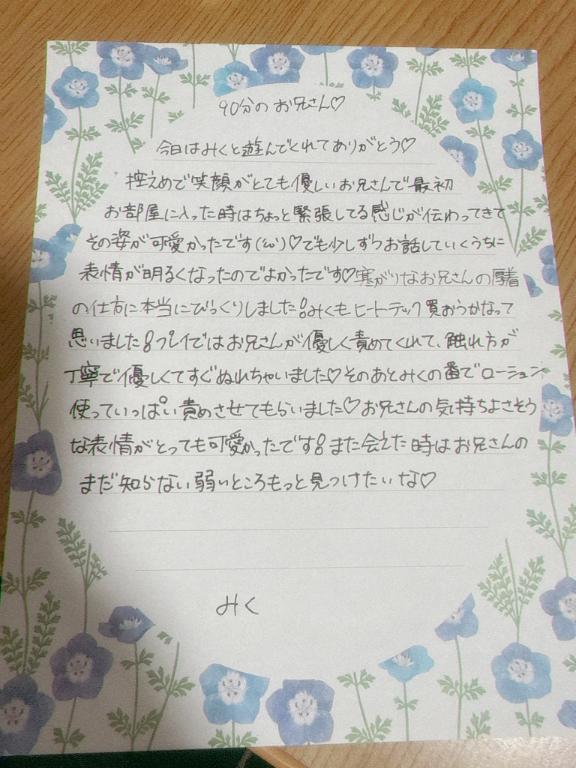 90分のお兄さん♡
今日はみくと遊んでくれてありがとう♡
控えめで笑顔がとても優しいお兄さんで最初
お部屋に入った時はちょっと緊張してる感じが伝わってきて
その姿が可愛かったです(ω)♡でも少しずつお話していくうちに
表情が明るくなったのでよかったです♡寒がりなお兄さんの厚着
の仕方に本当にびっくりしました!みくもヒートテック買おうかなって
思いました!プレイではお兄さんが優しく責めてくれて、触れ方が
丁寧で優しくてすぐぬれちゃいました♡そのあとみくの番でローション
使っていっぱい責めさせてもらいました♡お兄さんの気持ちよさそう
な表情がとっても可愛かったです!また会えた時はお兄さんの
まだ知らない弱いところもっと見つけたいな♡
みく